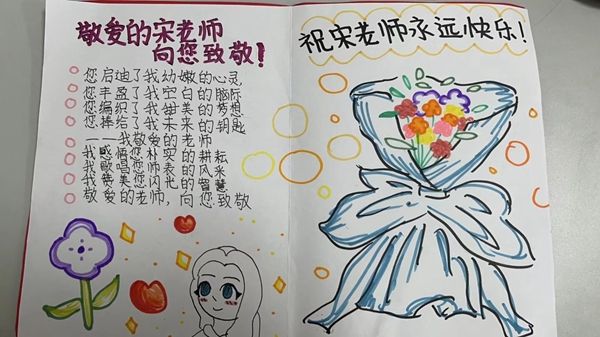 敬爱的宋老师
向您致敬!
您启迪了我幼嫩的心灵
您丰盈了我空白的脑际
您编织了我甜美的梦想
您捧给了我未来的钥匙
——我敬爱的老师
我感悟您朴实的耕耘
我歌唱您师表的风采
我赞美您闪光的智慧
敬爱的老师,向您致敬
祝宋老师永远快乐!